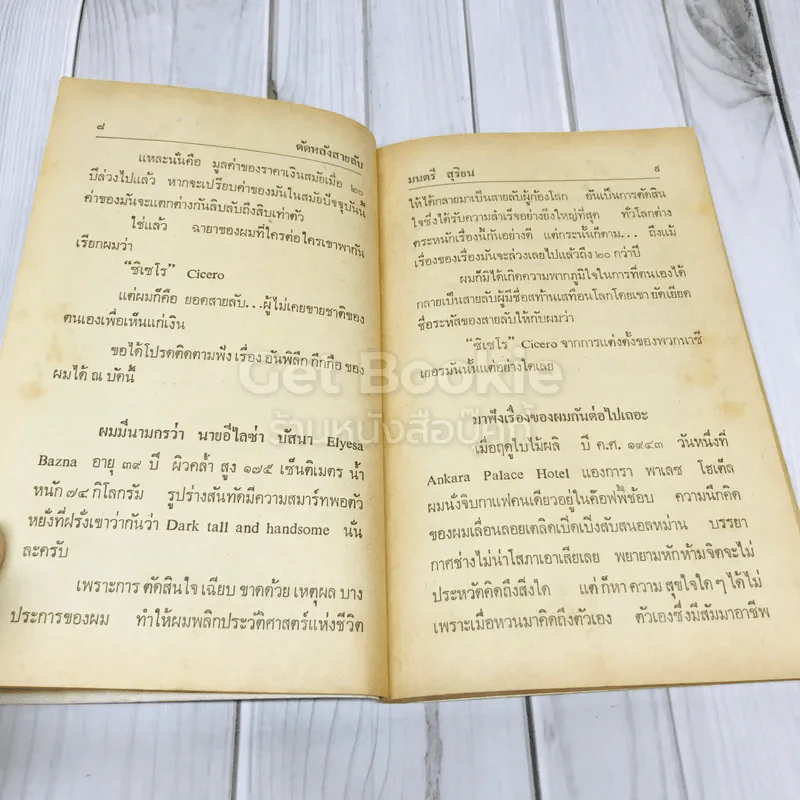 ๘
ตัดหลังสายลับ
แหละนั่นคือ มูลค่าของราคาเงินสมัยเมื่อ ๒๐
ปีล่วงไปแล้ว หากจะเปรียบค่าของมันในสมัยปัจจุบันนี้
ค่าของมันจะแตกต่างกันลิบลับถึงสิบเท่าตัว
ใช่แล้ว ฉายาของผมที่ใครต่อใครเขาพากัน
เรียกผมว่า
“ซิเซโร” Cicero
แต่ผมก็คือ ยอดสายลับ...ผู้ไม่เคยขายชาติของ
ตนเองเพื่อเห็นแก่เงิน
ขอได้โปรดติดตามฟัง เรื่อง อันพิลึก กึกกือ ของ
ผมได้ ณ บัดนี้
ผมมีนามกรว่า นายอีไลซ่า บัสนา Elyesa
Bazna อายุ ๓๙ ปี ผิวคล้ำ สูง ๑๗๕ เซ็นติเมตร น้ำ
หนัก ๗๔ กิโลกรัม รูปร่างสันทัดมีความสมาร์ทพอตัว
หยั่งที่ฝรั่งเขาว่ากันว่า Dark tall and handsome นั่น
ละครับ
เพราะการ ตัดสินใจ เฉียบ ขาดด้วย เหตุผล บาง
ประการของผม ทำให้ผมพลิกประวัติศาสตร์แห่งชีวิต
มนตรี สุริยน
๙
ให้ได้กลายมาเป็นสายลับผู้ก้องโลก อันเป็นการตัดสิน
ใจซึ่งได้รับความสำเร็จอย่างยิ่งใหญ่ที่สุด ทั่วโลกต่าง
ตระหนักเรื่องนี้กันอย่างดี แต่กระนั้นก็ตาม... ถึงแม้
เรื่องของเรื่องมันจะล่วงเลยไปแล้วถึง ๒๐ กว่าปี
ผมก็มิได้เกิดความพากภูมิใจในการที่ตนเองได้
กลายเป็นสายลับผู้มีชื่อสท้านเสทือนโลกโดยเขา ยัดเยียด
ชื่อรหัสของสายลับให้กับผมว่า
“ซิเซโร” Cicero จากการแต่งตั้งของพวกนาซี
เยอรมันนั้นแต่อย่างใดเลย
มาฟังเรื่องของผมกันต่อไปเถอะ
เมื่อฤดูใบไม้ผลิ ปี ค.ศ. ๑๙๔๓ วันหนึ่งที่
Ankara Palace Hotel แองการา พาเลซ โฮเต็ล
ผมนั่งจิบกาแฟคนเดียวอยู่ในค๊อฟฟี่ช้อบ ความนึกคิด
ของผมเลื่อนลอยเตลิดเปิดเปิงสับสนอลหม่าน บรรยา
กาศช่างไม่น่าโสภาเอาเสียเลย พยายามหักห้ามจิตจะไม่
ประหวัดคิดถึงสิ่งใด แต่ ก็หา ความ สุขใจใด ๆ ได้ไม่
เพราะเมื่อหวนมาคิดถึงตัวเอง ตัวเองซึ่งมีสัมมาอาชีพ
Get Bookie
ร้านหนังสือบุ๊คกี้